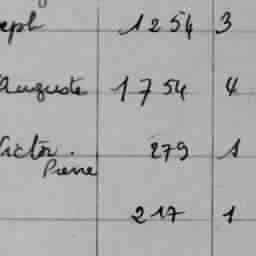 eph 1254 3
Auguste 1754 4
Victor. 279 1
Pierre
217 1